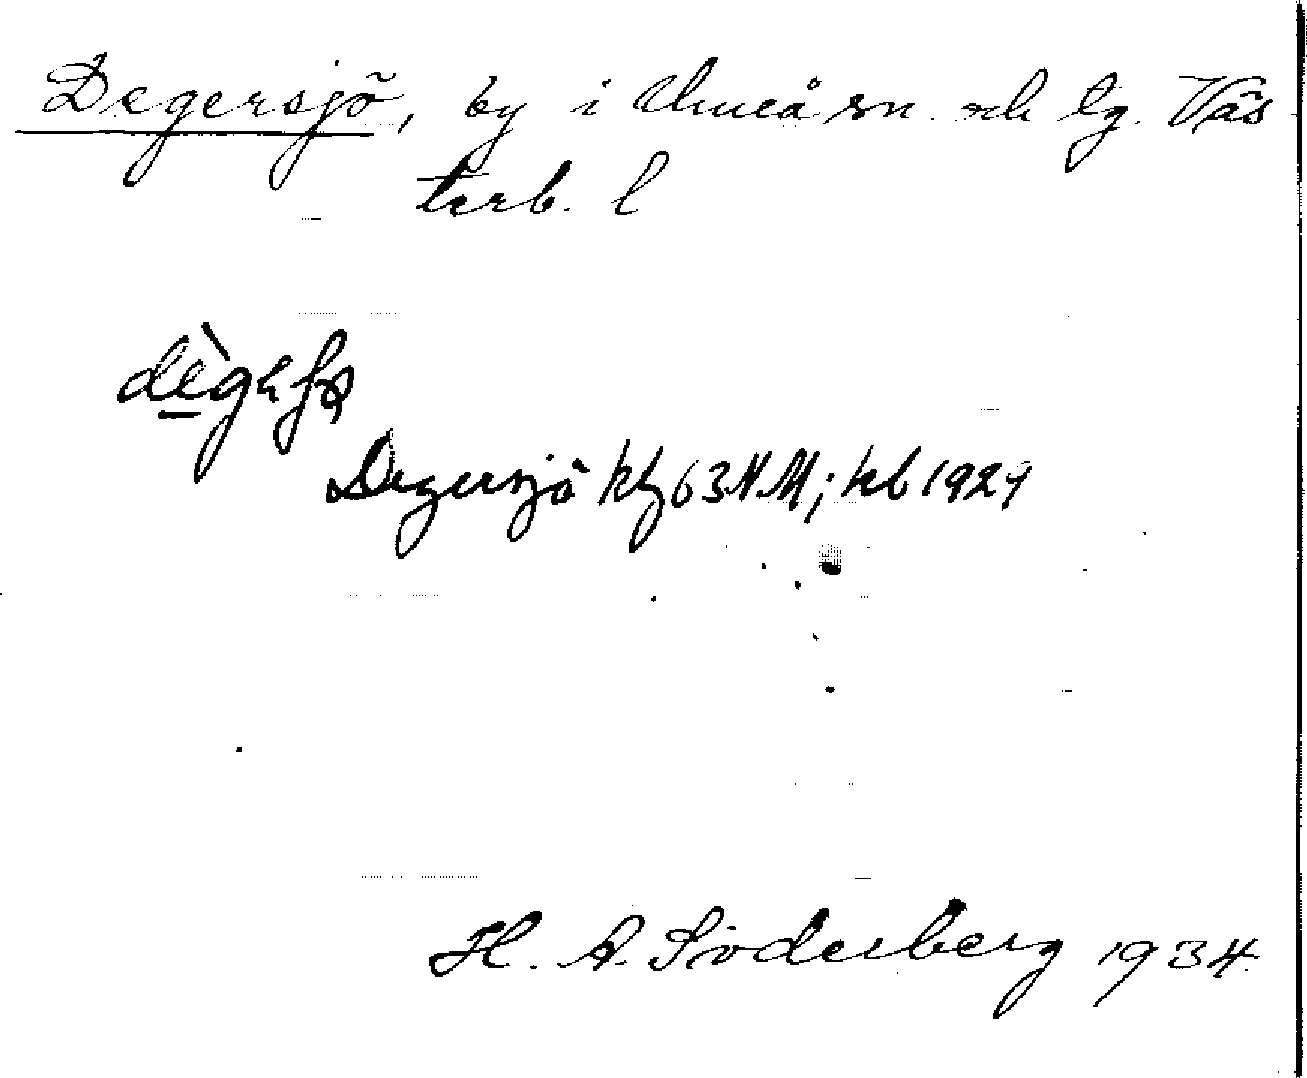 Degersjö, by i Umeå sn. och lg. Väs
terb. l
Degersjö kz 63 N.M; kb 1929
H. A. Söderberg 1934